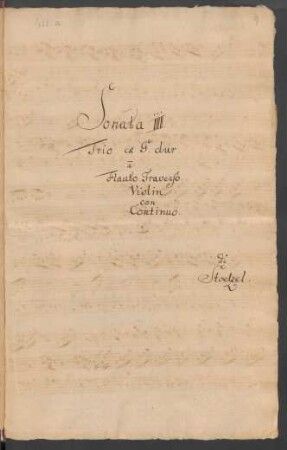 Sonata III
Trio ex G dur
a
Flauto Traverso
Violin
con
Continuo
di
Stoelzel.